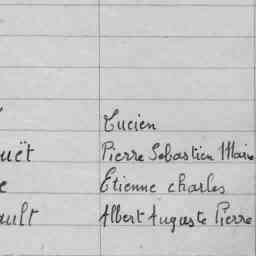 Lucien
uët Pierre Sébastien Marie
e Etienne charles
ault Albert Auguste Pierre